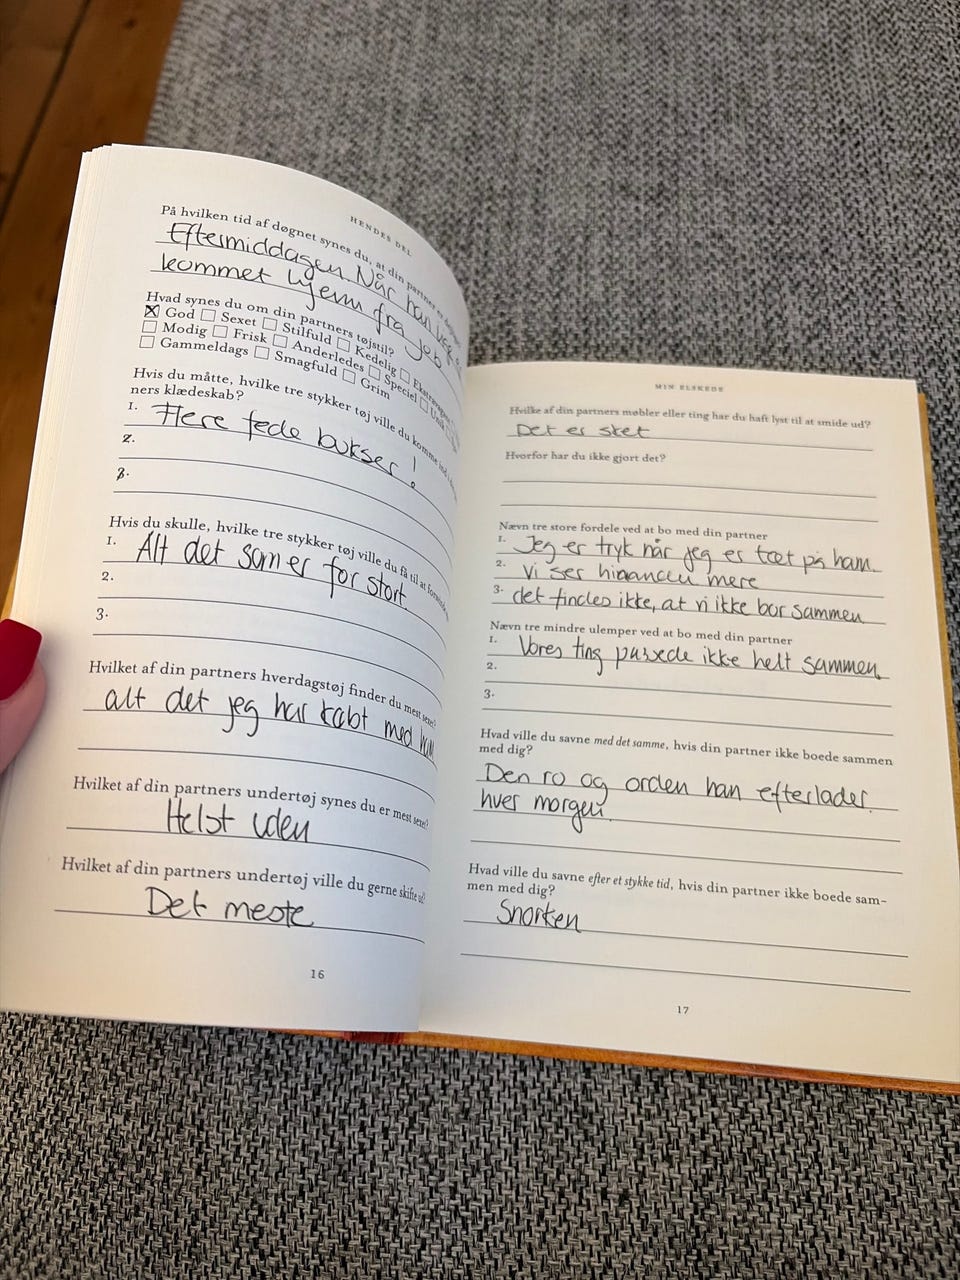 HENDES DEL
På hvilken tid af døgnet synes du, at din partner er
Eftermiddagen. Når han
kommet hjem fra job
Hvad synes du om din partners tøjstil?
☒ God ☐ Sexet ☐ Stilfuld ☐ Kedelig ☐
☐ Modig ☐ Frisk ☐ Anderledes ☐ Speciel ☐ Unik
☐ Gammeldags ☐ Smagfuld ☐ Grim
Hvis du måtte, hvilke tre stykker tøj ville du komme ind i
ners klædeskab?
1. Flere fede bukser!
2.
3.
Hvis du skulle, hvilke tre stykker tøj ville du få til at
1. Alt det som er for stort.
2.
3.
Hvilket af din partners hverdagstøj finder du mest sexet?
alt det jeg har købt med
Hvilket af din partners undertøj synes du er mest sexet?
Helst uden
Hvilket af din partners undertøj ville du gerne skifte ud?
Det meste
16
MIN ELSKEDE
Hvilke af din partners møbler eller ting har du haft lyst til at smide ud?
Det er sket
Hvorfor har du ikke gjort det?
Nævn tre store fordele ved at bo med din partner
1. Jeg er tryk når jeg er tæt på ham.
2. Vi ser hinanden mere
3. det findes ikke, at vi ikke bor sammen
Nævn tre mindre ulemper ved at bo med din partner
1. Vores ting passede ikke helt sammen
2.
3.
Hvad ville du savne med det samme, hvis din partner ikke boede sammen
med dig?
Den ro og orden han efterlader
hver morgen.
Hvad ville du savne efter et stykke tid, hvis din partner ikke boede sam-
men med dig?
Snorken
17